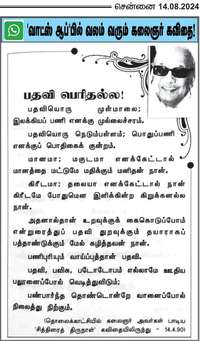 சென்னை 14.08.2024
'வாட்ஸ் ஆப்'பில் வலம் வரும் கலைஞர் கவிதை!
பதவி பெரிதல்ல!
பதவியொரு முள்மாலை;
இலக்கியப் பணி எனக்கு முல்லைச்சரம்.
பதவியொரு நெடும்பள்ளம்; பொதுப்பணி
எனக்குப் பொதிகைக் குன்றம்.
மானமா; மகுடமா எனக்கேட்டால்
மானத்தை மட்டுமே மதிக்கும் மனிதன் நான்.
கிரீடமா; தலையா எனக்கேட்டால் நான்
கிரீடமே போதுமென இளிக்கின்ற கிறுக்கனல்ல
நான்.
அதனால்தான் உறவுக்குக் கைகொடுப்போம்
என்றுரைத்துப் பதவி துறக்கும் தயாராகப்
பத்தாண்டுக்கும் மேல் கழித்தவன் நான்.
பணிபுரியும் வாய்ப்புத்தான் பதவி.
பதவி, பவிசு, படோடோபம் எல்லாமே ஊதிய
பலூனைப்போல் வெடித்துவிடும்;
பண்பார்ந்த தொண்டொன்றே வானைப்போல்
நிலைத்து நிற்கும்.
(தொலைக்காட்சியில் கலைஞர் அவர்கள் பாடிய
'சித்திரைத் திருநாள்' கவிதையிலிருந்து - 14.4.90)